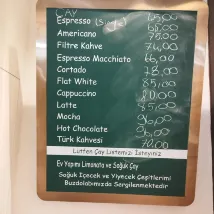 ÇAY
Espresso
Americano
Filtre Kahve
Espresso Macchiato 66,00
Cortado 78,00
Flat White 85,00
Cappuccino
Latte 85,00
Mocha
Hot Chocolate
Türk Kahvesi 70,00
Lütfen Çay Listemizi İsteyiniz
Ev Yapımı Limonata ve Soğuk Çay
Soğuk İçecek ve Yiyecek Çeşitlerimi
Buzdolabımızda Sergilenmektedir